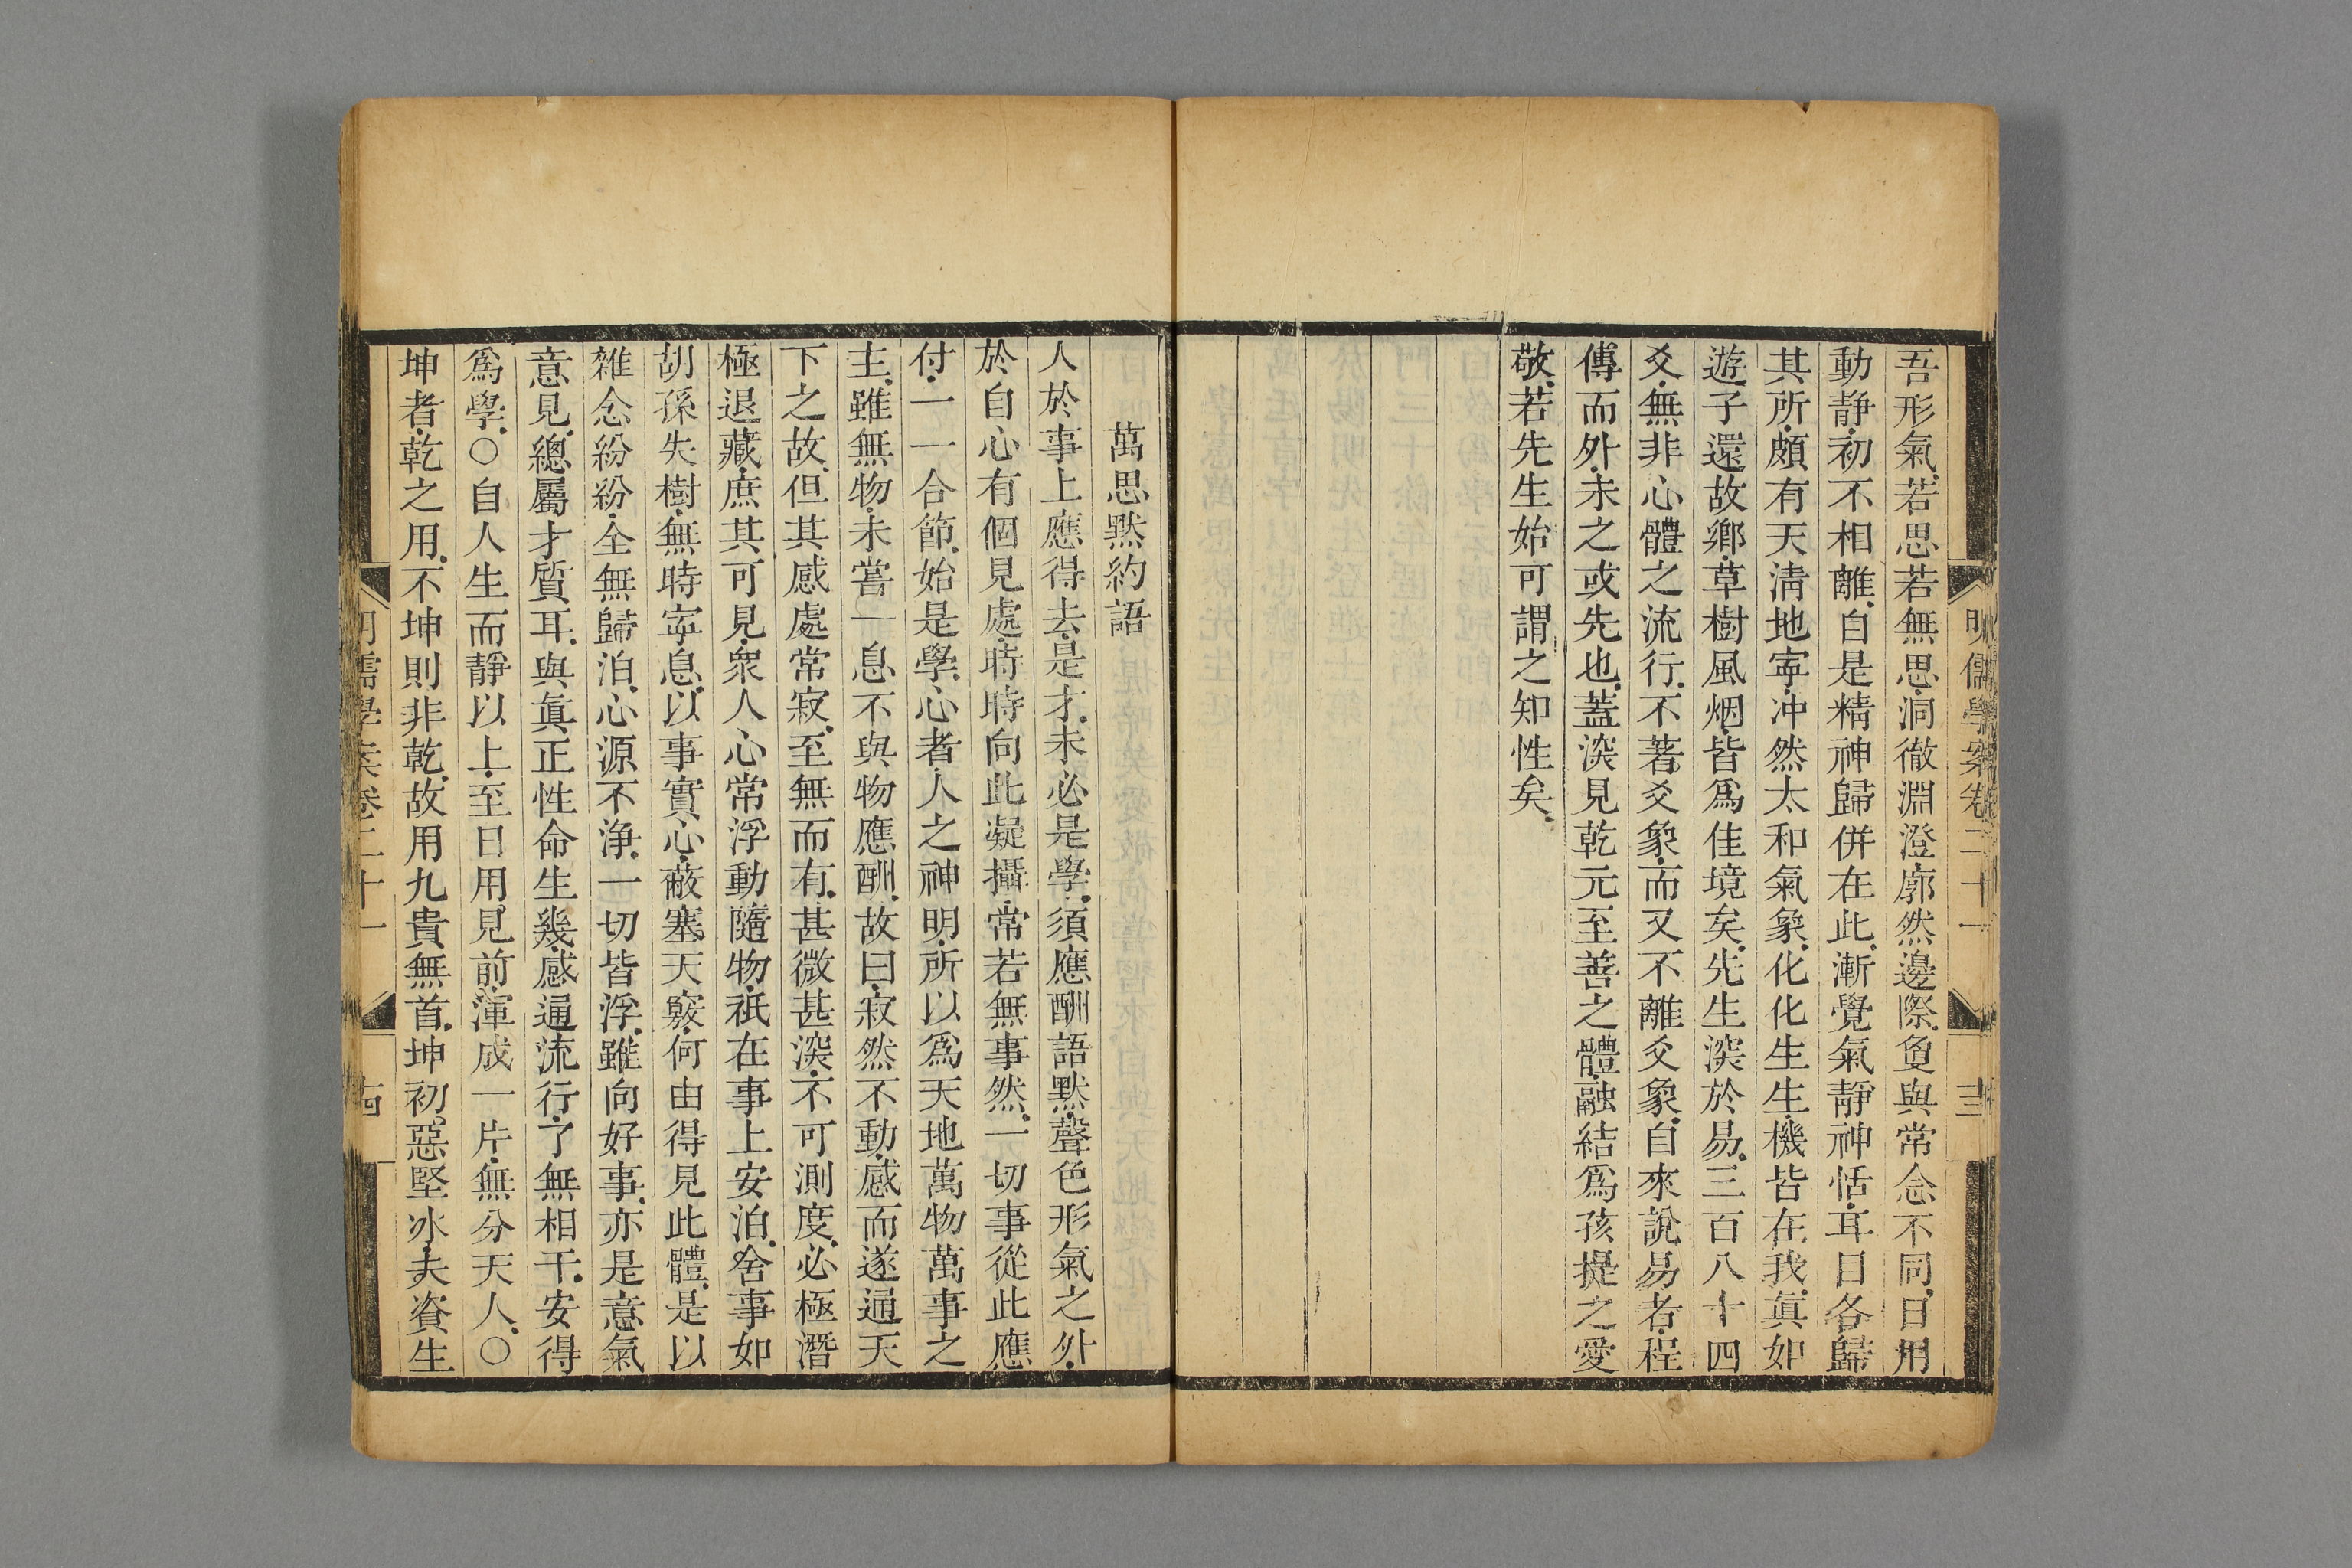 吾形氣若思若無思洞徹淵澄廓然邊際敻與常念不同日用
動靜初不相離自是精神歸併在此漸覺氣靜神恬耳目各歸
其所頗有天淸地寕冲然太和氣象化化生生機皆在我眞如
遊子還故鄉草樹風烟皆爲佳境矣先生深於易三百八十四
爻無非心體之流行不著爻象而又不離爻象自來說易者程
傳而外未之或先也蓋深見乾元至善之體融結爲孩提之愛
敬若先生始可謂之知性矣
萬思默約語
人於事上應得去是才未必是學須應酬語默聲色形氣之外
於自心有個見處時時向此凝攝常若無事然一切事從此應
付一一合節始是學心者人之神明所以爲天地萬物萬事之
主雖無物未嘗一息不與物應酬故曰寂然不動感而遂通天
下之故但其感處常寂至無而有甚微甚深不可測度必極潛
極退藏庶其可見衆人心常浮動隨物祇在事上安泊舍事如
胡孫失樹無時寕息以事實心蔽塞天竅何由得見此體是以
雜念紛紛全無歸泊心源不淨一切皆浮雖向好事亦是意氣
意見總屬才質耳與眞正性命生幾感通流行了無相干安得
爲學〇自人生而靜以上至日用見前渾成一片無分天人〇
坤者乾之用不坤則非乾故用九貴無首坤初惡堅冰夫資生
明儒學案卷二十一
十三
明儒學案卷二十一
十四